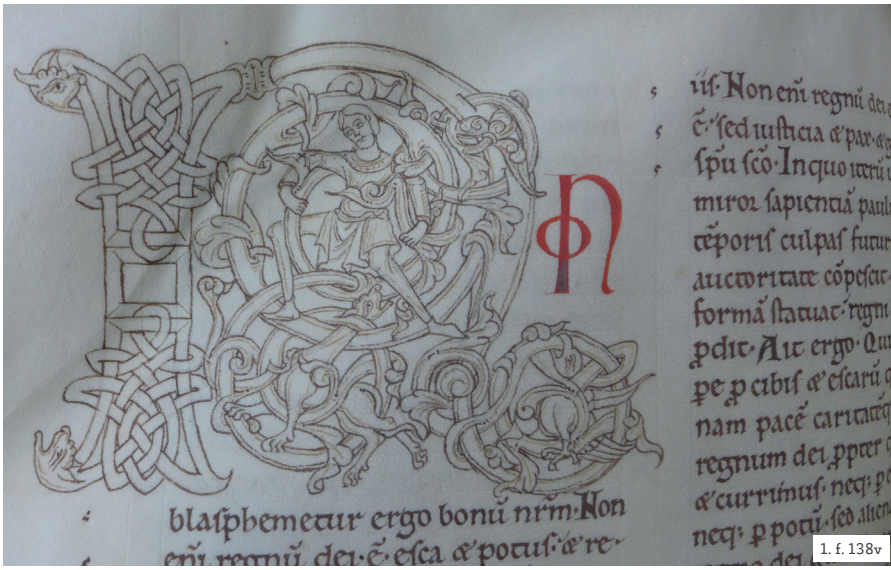 NON
blasphemetur ergo bonū nrm̄. Non
enī regnū dei. ē. esca & potus. & re-
iis. Non enī regnū dei
ē. sed iusticia & pax.
spū scō. Inquo iterū
miror sapientiā pauli
tēporis culpas futur
auctoritate cōpescit.
formā statuat. regni
ꝓdit. Ait ergo. Qui
pe ꝓ cibis & escarū
nam pacē caritatē
regnum dei ꝓpter
& currimus. neq; ꝓ
neq; ꝓ potū. sed alien
dei
1. f. 138v